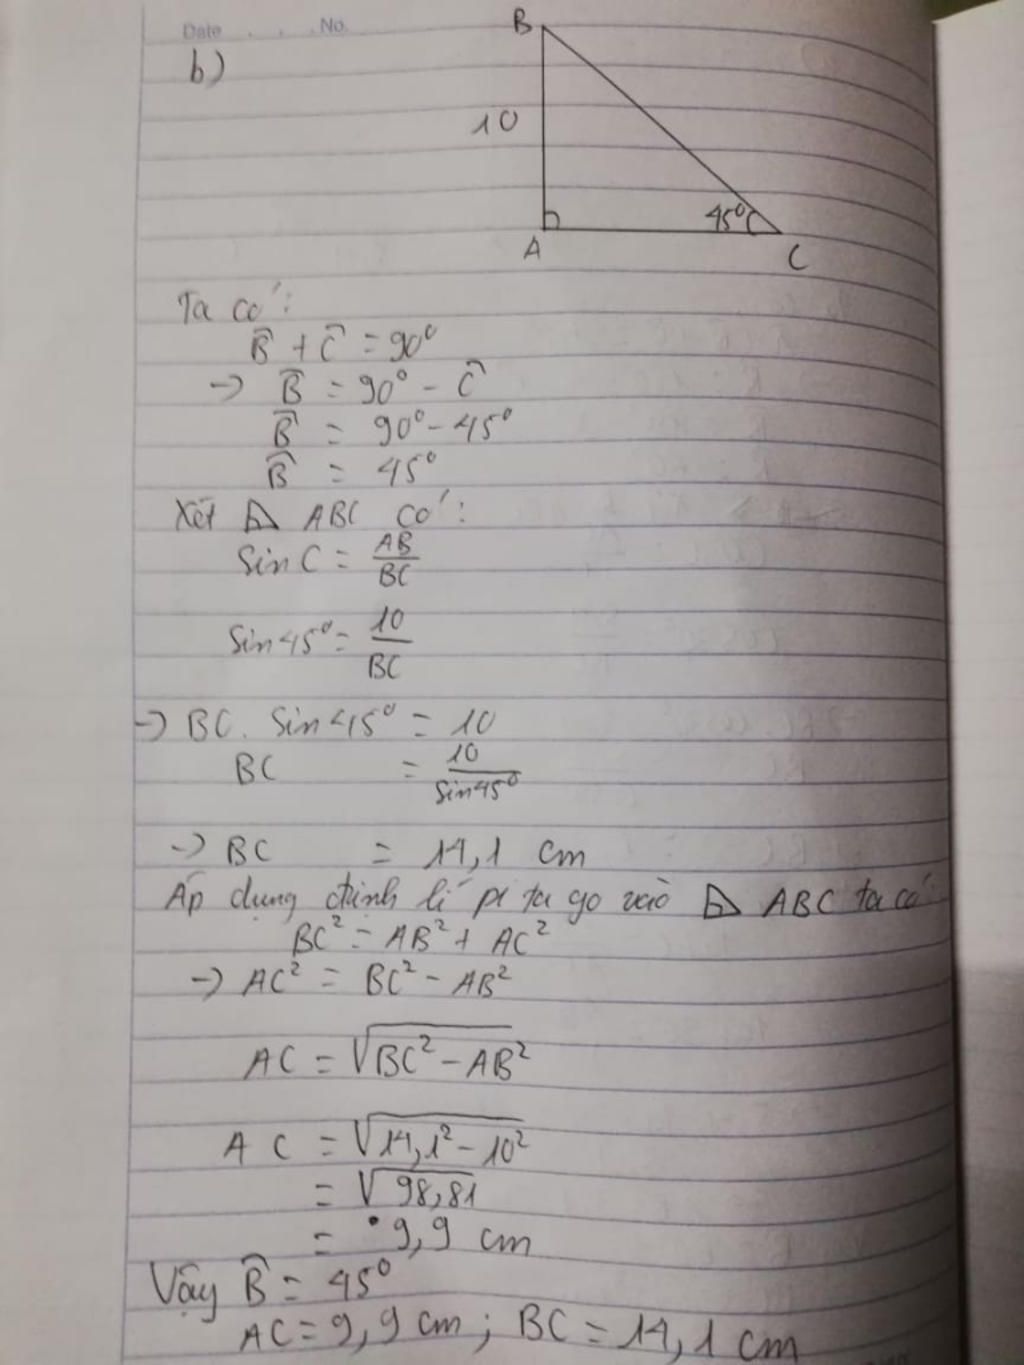 Date . . . No.
b)
B
10
45°
A
C
Ta có:
B̂ + Ĉ = 90°
-> B̂ = 90° - Ĉ
B̂ = 90° - 45°
B̂ = 45°
Xét ⊿ ABC có:
Sin C = AB/BC
Sin 45° = 10/BC
-> BC. Sin 45° = 10
BC = 10/Sin45°
-> BC = 14,1 cm
Áp dụng định lí pi ta go vào ⊿ ABC ta có:
BC² = AB² + AC²
-> AC² = BC² - AB²
AC = √BC² - AB²
AC = √14,1² - 10²
= √98,81
= 9,9 cm
Vậy B̂ = 45°
AC = 9,9 cm ; BC = 14,1 cm